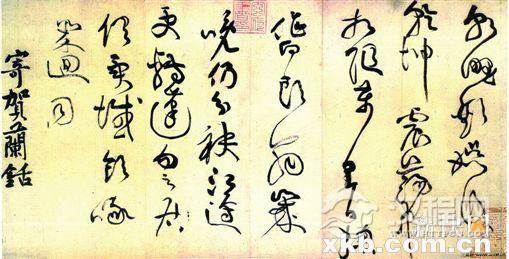 朝野歡娛後
乾坤震蕩中
相隨萬里日
總作白頭翁歲
晚仍分袂江邊
更轉蓬勿云
俱異域飲啄
幾回同
寄賀蘭銛
xkb.com.cn